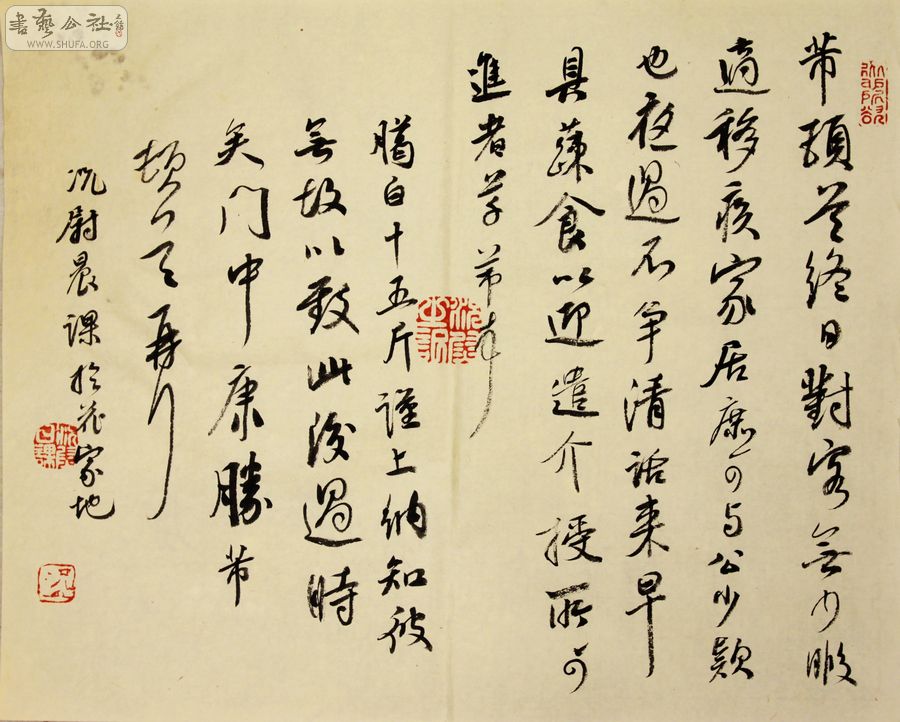 芾頓首終日對客無少暇
適移疾家居庶可與公少款
也夜過不爭清話來早
具蔬食以迎遣介授所可
進者草芾
腊白十五斤謹上納知彼
無故以致此後過時
矣門中康勝芾
頓首再
沈尉晨課於花家地
書藝公社
WWW.SHUFA.ORG